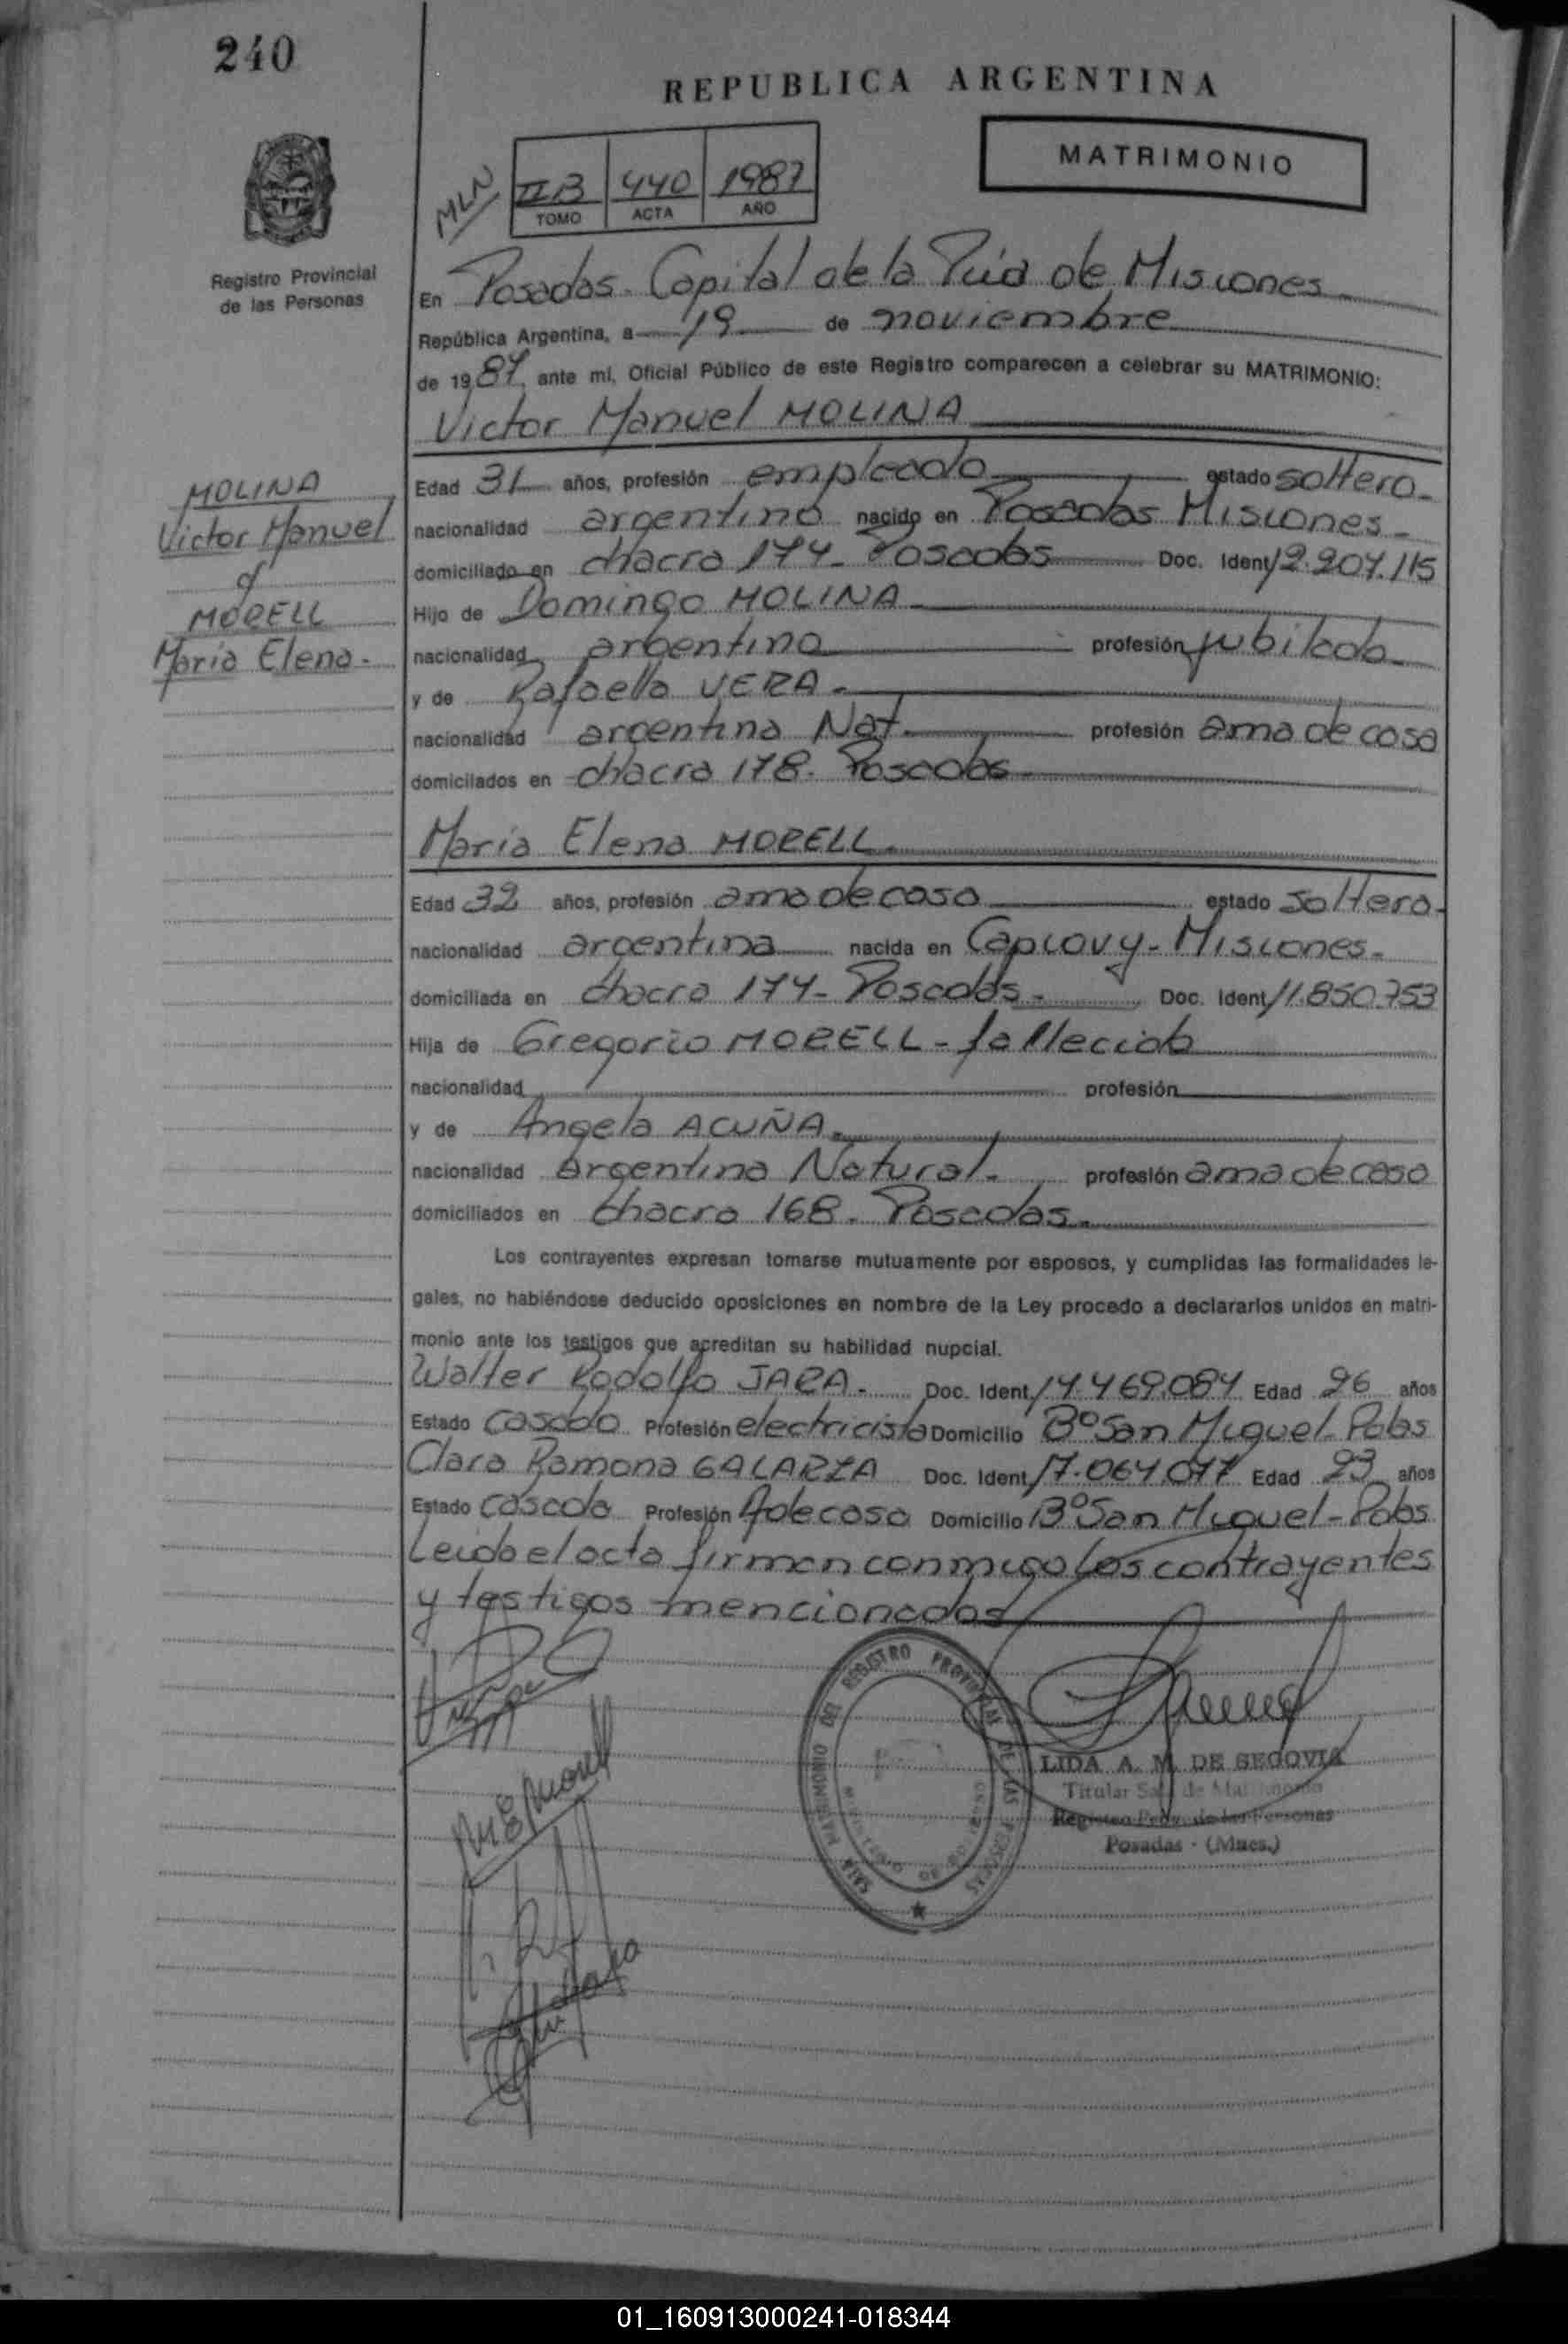 240
REPUBLICA ARGENTINA
MATRIMONIO
MLN
IIB 440 1987
TOMO ACTA AÑO
Registro Provincial
de las Personas
En Posadas. Capital de la Pcia de Misiones
República Argentina, a 19 de noviembre
de 1987 ante mí, Oficial Público de este Registro comparecen a celebrar su MATRIMONIO:
Victor Manuel MOLINA
MOLINA
Victor Manuel
MORELL
Maria Elena.
Edad 31 años, profesión empleado estado soltero.
nacionalidad argentino nacido en Posadas Misiones.
domiciliado en chacra 174. Posadas Doc. Ident 12.207.115
Hijo de Domingo MOLINA
nacionalidad argentino profesión jubilado.
y de Rafaella VERA.
nacionalidad argentina Nat. profesión ama de casa
domicilados en chacra 178. Posadas.
Maria Elena MORELL.
Edad 32 años, profesión ama de casa estado soltera.
nacionalidad argentina nacida en Capiovy- Misiones.
domiciliada en chacra 174- Posadas. Doc. Ident 11.850.753
Hija de Gregorio MORELL - fallecido
nacionalidad profesión
y de Angela ACUÑA.
nacionalidad Argentina Natural. profesión ama de casa
domiciliados en chacra 168. Posadas.
Los contrayentes expresan tomarse mutuamente por esposos, y cumplidas las formalidades le-
gales, no habiéndose deducido oposiciones en nombre de la Ley procedo a declararlos unidos en matri-
monio ante los testigos que acreditan su habilidad nupcial.
Walter Rodolfo JARA. Doc. Ident. 14.469.084 Edad 26 años
Estado casado Profesión electricista Domicilio Bº San Miguel-Pdas
Clara Ramona GALARZA Doc. Ident 17.064.077 Edad 23 años
Estado casada Profesión A de casa Domicilio Bº San Miguel-Pdas
Leida el acta firman conmigo los contrayentes
y testigos mencionados
SALA MATRIMONIO DEL REGISTRO PROVINCIAL DE LAS PERSONAS
LIDA A. M. DE SEGOVIA
Titular Sala de Matrimonio
Registro Prov. de las Personas
Posadas - (Mnes.)
01_160913000241-018344